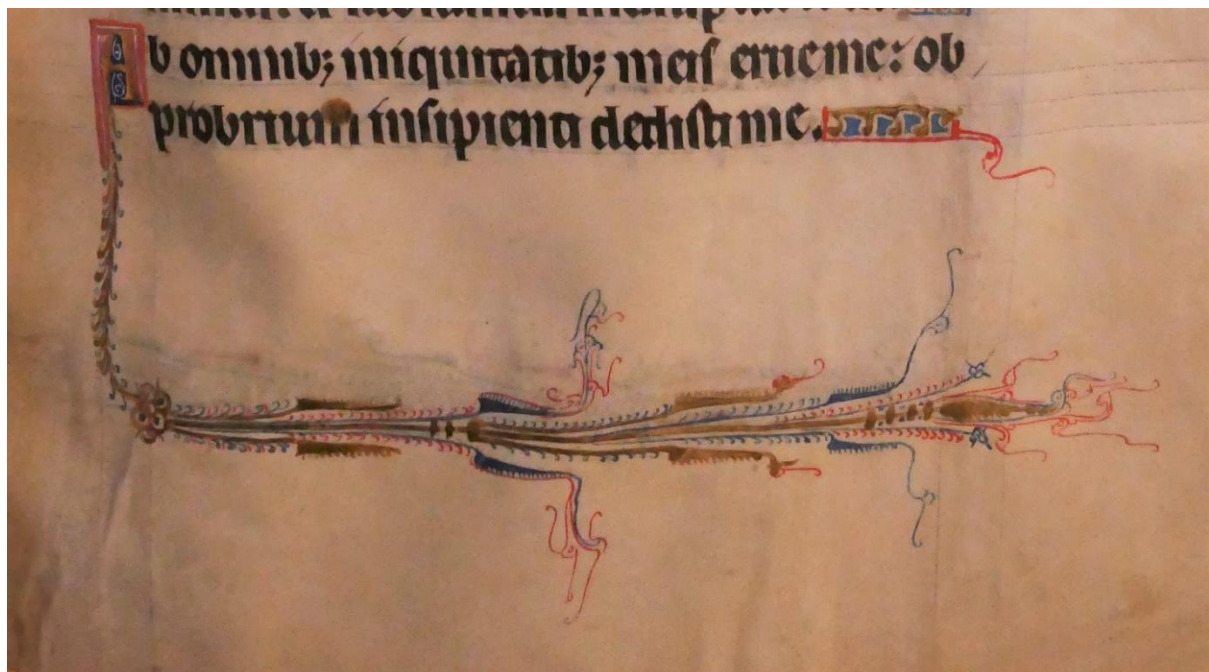 Ab omnib; iniquitatib; meis erue me: ob
probrium insipienti dedisti me.